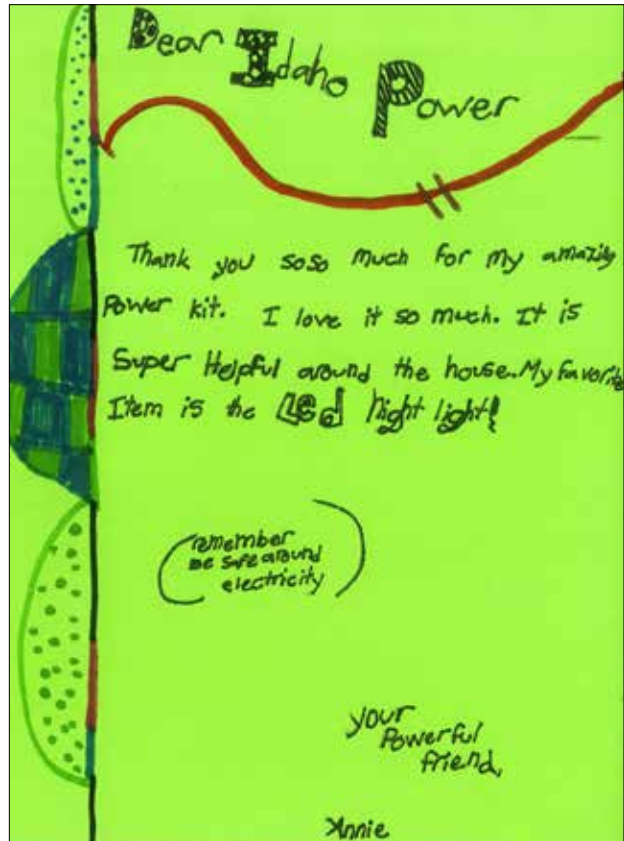 Dear Idaho Power
Thank you soso much for my amazing
Power kit. I love it so much. It is
Super Helpful around the house. My favorite
Item is the Led night light!
(remember
be safe around
electricity)
your
Powerful
friend,
Annie